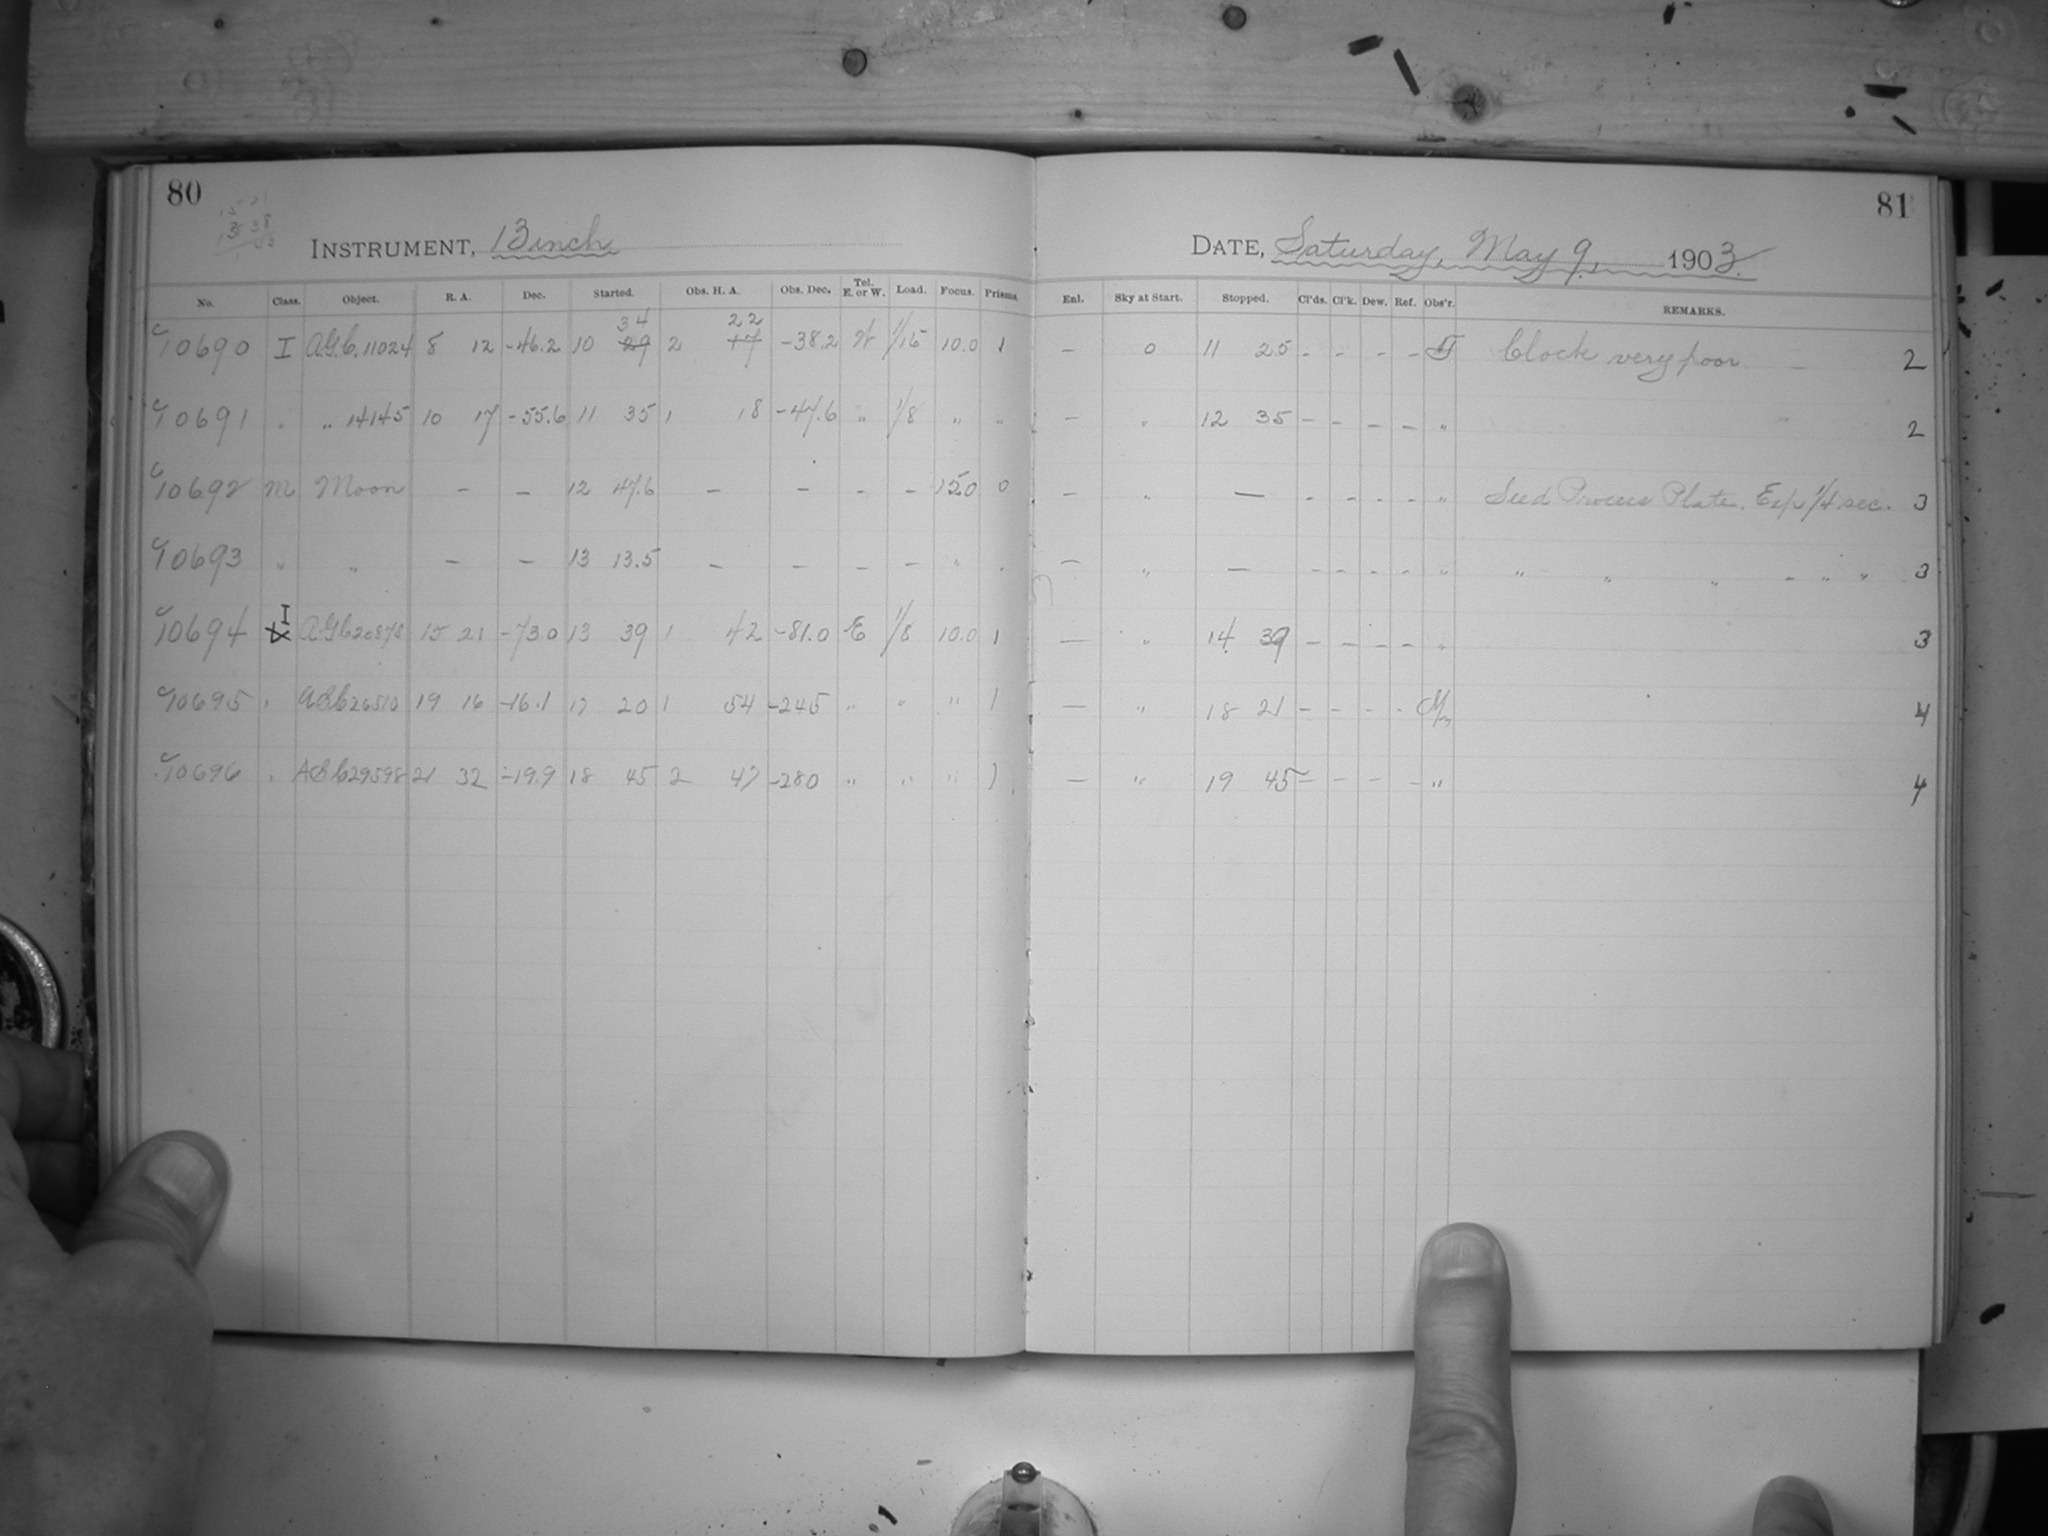 80
INSTRUMENT, 13 inch
No. Class. Object. R. A. Dec. Started. Obs. H. A. Obs. Dec. Tel. E. or W. Load. Focus. Prisms.
34 22
10690 I A.G.C. 11024 8 12 -46.2 10 29 2 17 -38.2 W 1/15 10.0 1
10691 " " 14145 10 17 -55.6 11 35 1 18 -47.6 " 1/8 " "
10692 M Moon - - 12 47.6 - - - - 15.0 0
10693 " " - - 13 13.5 - - - - " "
I
10694 A.G.C. 20878 15 21 -73.0 13 39 1 42 -81.0 E 1/8 10.0 1
10695 " A.G.C. 26510 19 16 -16.1 17 20 1 54 -24.5 " " " 1
10696 " A.G.C. 29598 21 32 -19.9 18 45 2 47 -28.0 " " " 1
81
DATE, Saturday, May 9, 1903.
Enl. Sky at Start. Stopped. Cl'ds. Cl'k. Dew. Ref. Obs'r. REMARKS.
- 0 11 25 - - - - Clock very poor. 2
- " 12 35 - - - - " 2
- " - - - - - " Seed Process Plate. Exp 1/4 sec. 3
- " - - - - - " " " " " " " 3
- " 14 39 - - - - " 3
- " 18 21 - - - - 4
- " 19 45 - - - - " 4